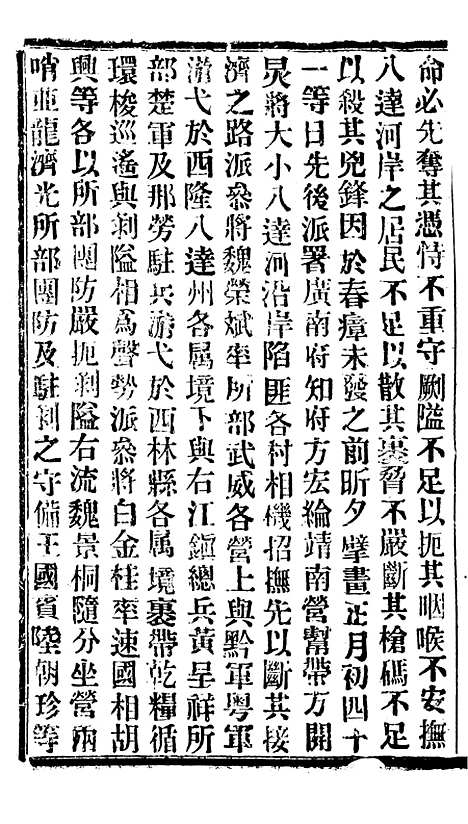 命必先奪其憑恃不重守剝隘不足以扼其咽喉不安撫
八達河岸之居民不足以散其裹脅不嚴斷其槍碼不足
以殺其兇鋒因於春瘴未發之前昕夕擘畫正月初四十
一等日先後派署廣南府知府方宏綸靖南營幫帶方開
炅將大小八達河沿岸陷匪各村相機招撫先以斷其接
濟之路派叅將魏榮斌率所部武威各營上與黔軍粤軍
游弋於西隆八達州各属境下與右江鎭總兵黃呈祥所
部楚軍及那勞駐兵游弋於西林縣各属境裹帶乾糧循
環梭巡遙與剝隘相爲聲勢派叅將白金柱率速國相胡
興等各以所部團防嚴扼剝隘右流魏景桐隨分坐營兩
哨亜龍濟光所部團防及駐剝之守備王國賓陸朝珍等